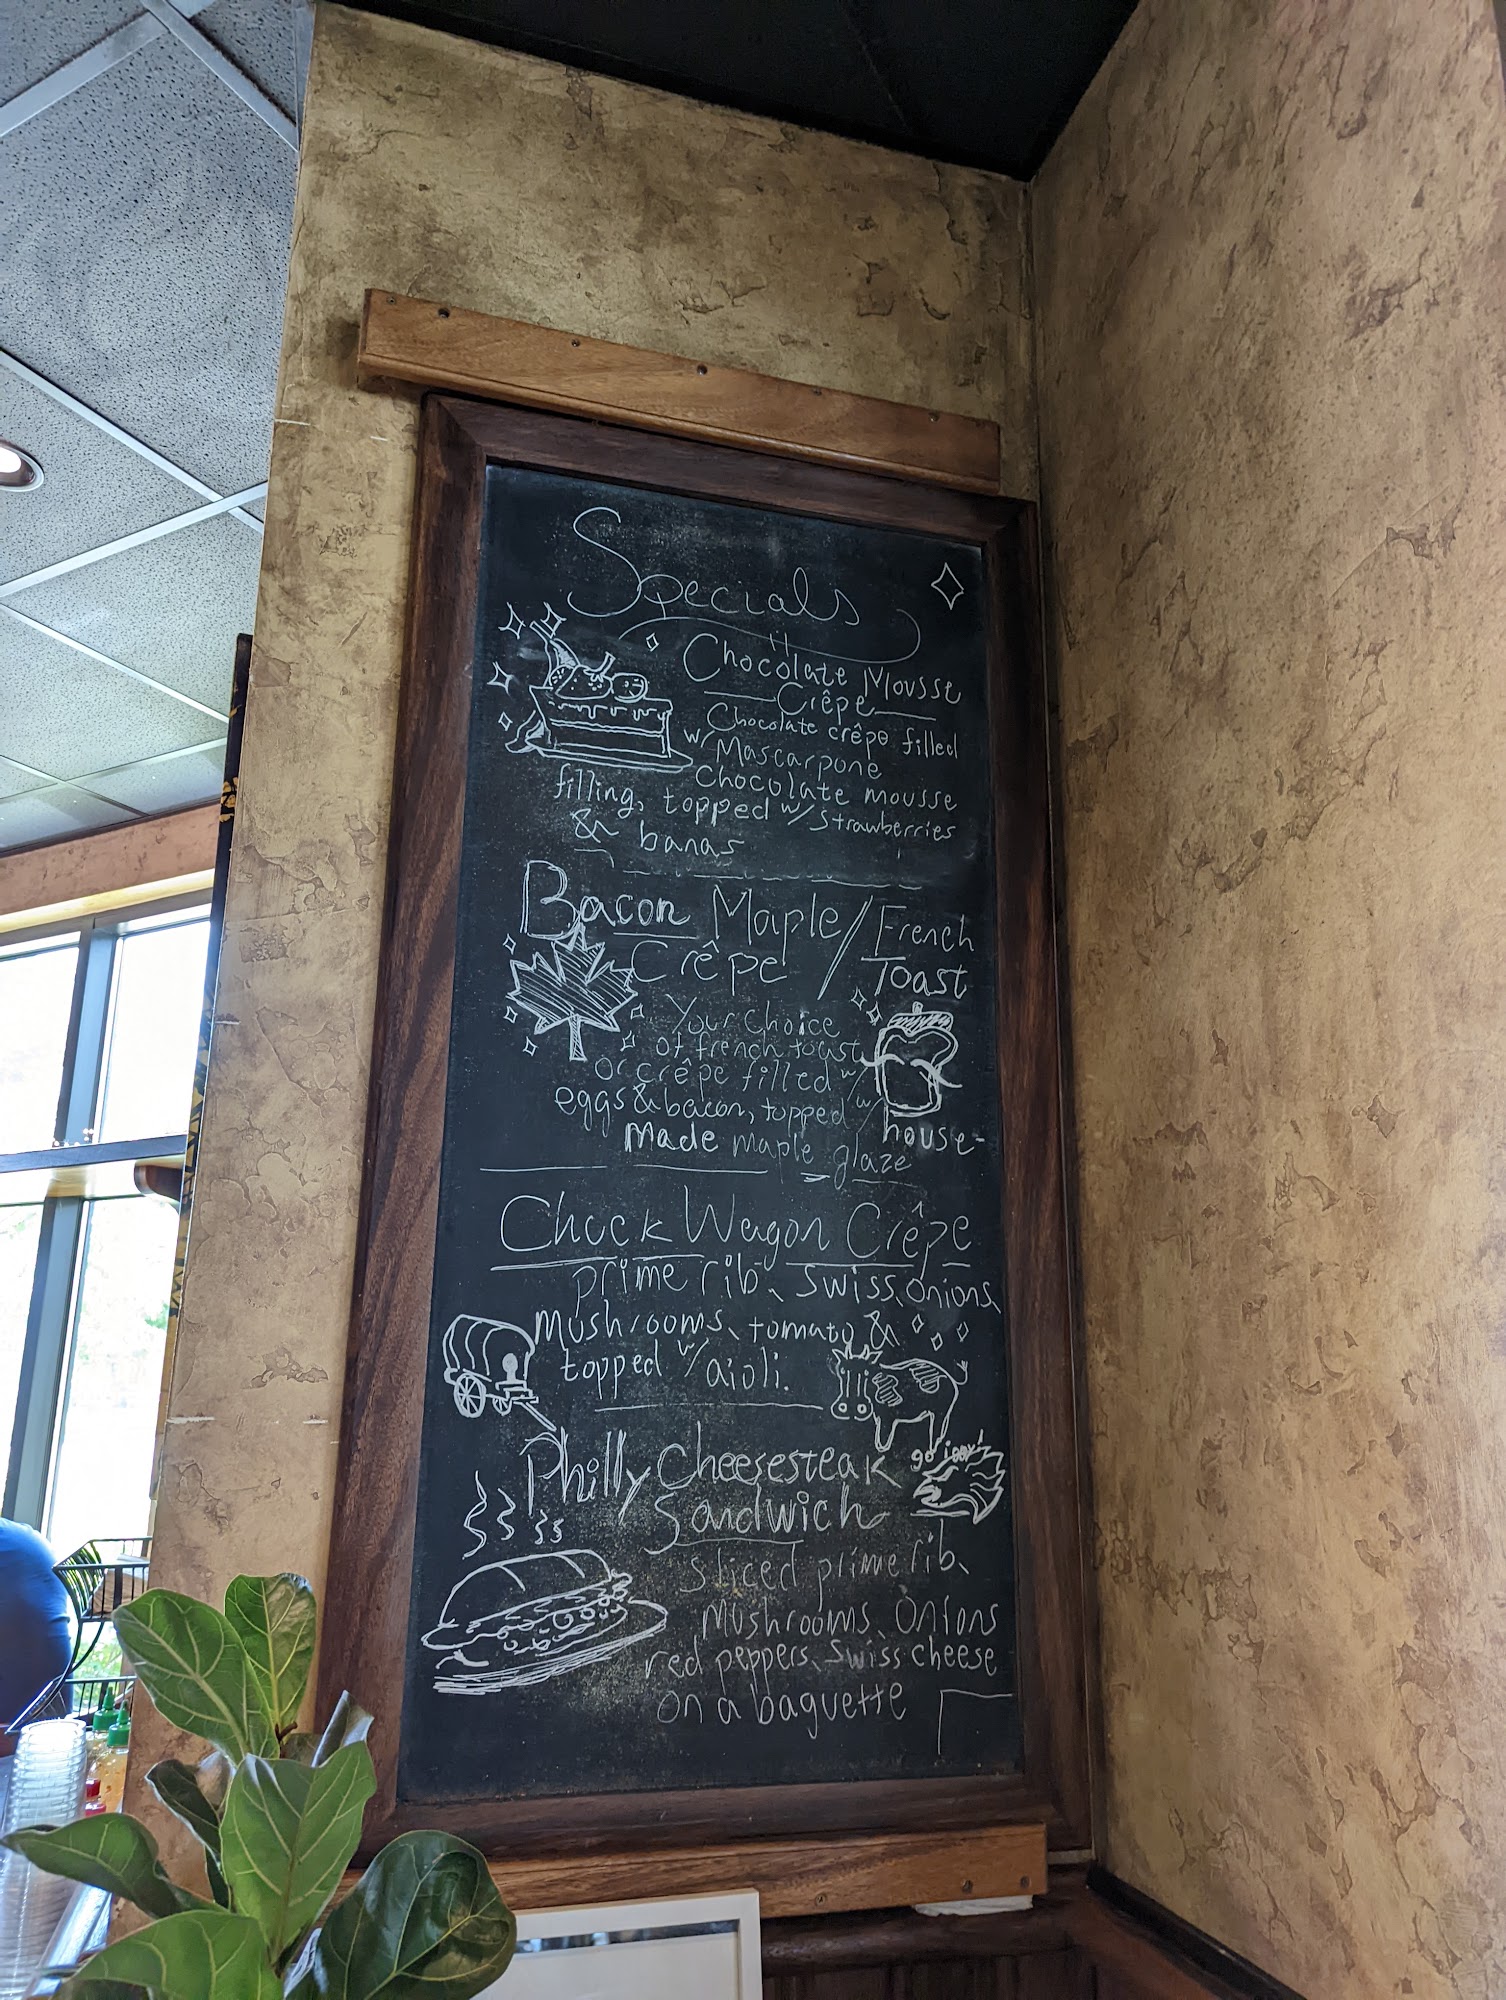 Specials
Chocolate Mousse
Crêpe
Chocolate crêpe filled
w/ Mascarpone
chocolate mousse
filling, topped w/ strawberries
& banas
Bacon Maple / French
Crêpe Toast
Your choice
of french toast
or crêpe filled w/
eggs & bacon, topped w/
house-
Made maple glaze
Chuck Wagon Crêpe
prime rib, swiss, onions,
Mushrooms, tomato &
topped w/ aioli.
Philly Cheesesteak
go iggy!
Sandwich
sliced prime rib,
Mushrooms, Onions
red peppers, swiss cheese
on a baguette